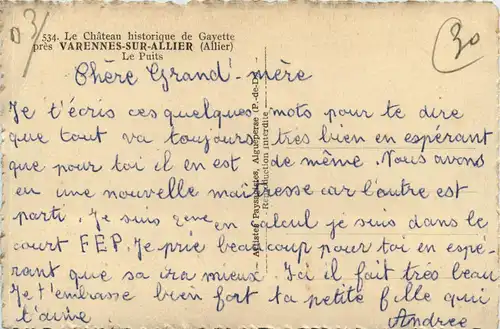 03/
30
534. Le Château historique de Gayette
près VARENNES-SUR-ALLIER (Allier)
Le Puits
Chère Grand'mère
Je t'écris ces quelques mots pour te dire
que tout va toujours très bien en espérant
que pour toi il en est de même. Nous avons
eu une nouvelle maîtresse car l'autre est
parti. Je suis en calcul je suis dans le
court FEP. Je prie beaucoup pour toi en espé-
rant que sa ira mieux. Ici il fait très beau
Je t'embrasse bien fort ta petite fille qui
t'aime Andree
Artistes Paysagistes, Aigueperse (P.-de-D.)
Reproduction interdite